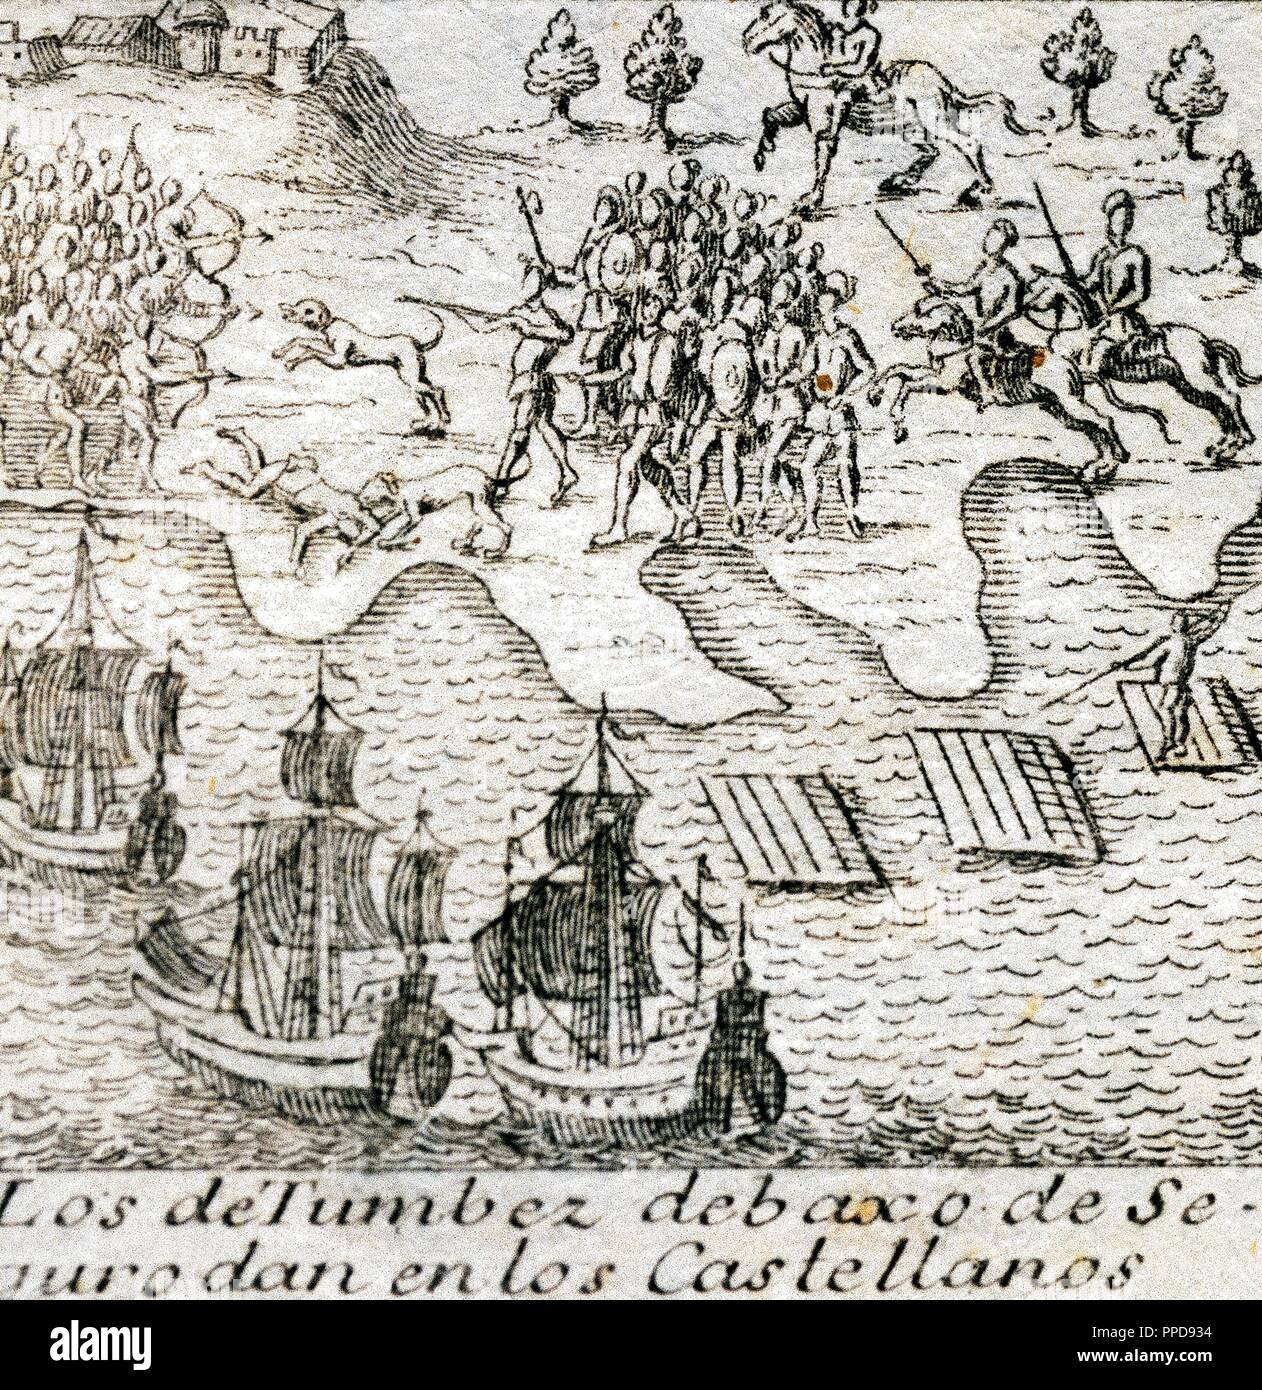 Los de Tumbez debaxo de Se-
guro dan en los Castellanos
alamy
Image ID: PPD934
www.alamy.com